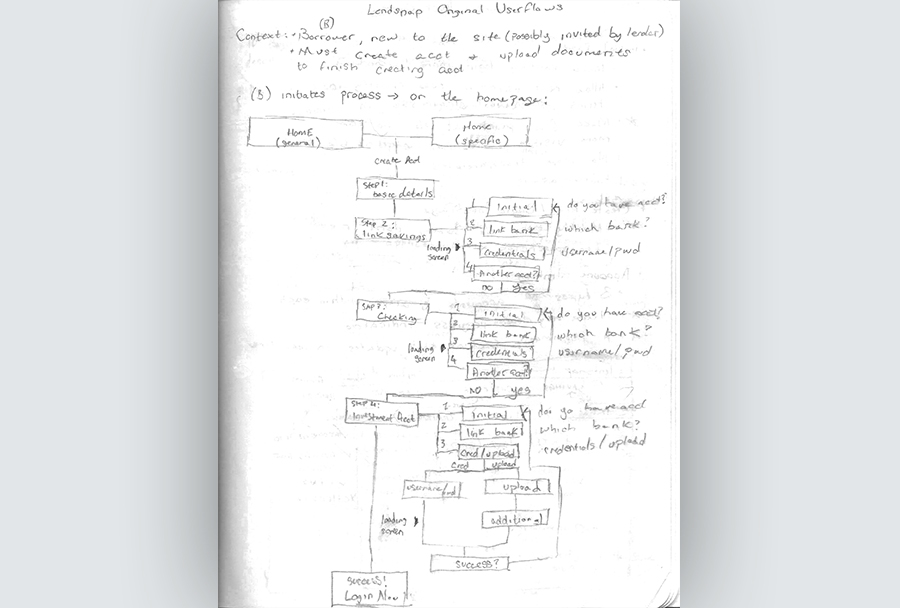 Lendsnap Original Userflows
(B)
Context: • Borrower, new to the site (possibly invited by lender)
• Must create acct + upload documents
to finish creating acct
(B) initiates process → or the homepage:
HOME
(general)
Home
(specific)
create Acct
Step 1:
basic details
Step 2:
link savings
1 initial do you have acct?
2 link bank which bank?
3 credentials username/pwd
loading
screen
4 Another acct?
NO yes
Step 3:
Checking
1 initial do you have acct?
2 link bank which bank?
3 credentials username/pwd
loading
screen
4 Another acct?
NO yes
Step 4:
Investment Acct
1 initial do yo have acct
2 link bank which bank?
3 cred/upload credentials/upload
cred upload
username/pwd upload
loading
screen
additional
success?
success!
Login Now